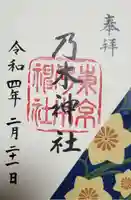 奉拝
乃木神社
東京
乃木
神社
令和四年二月二十一日